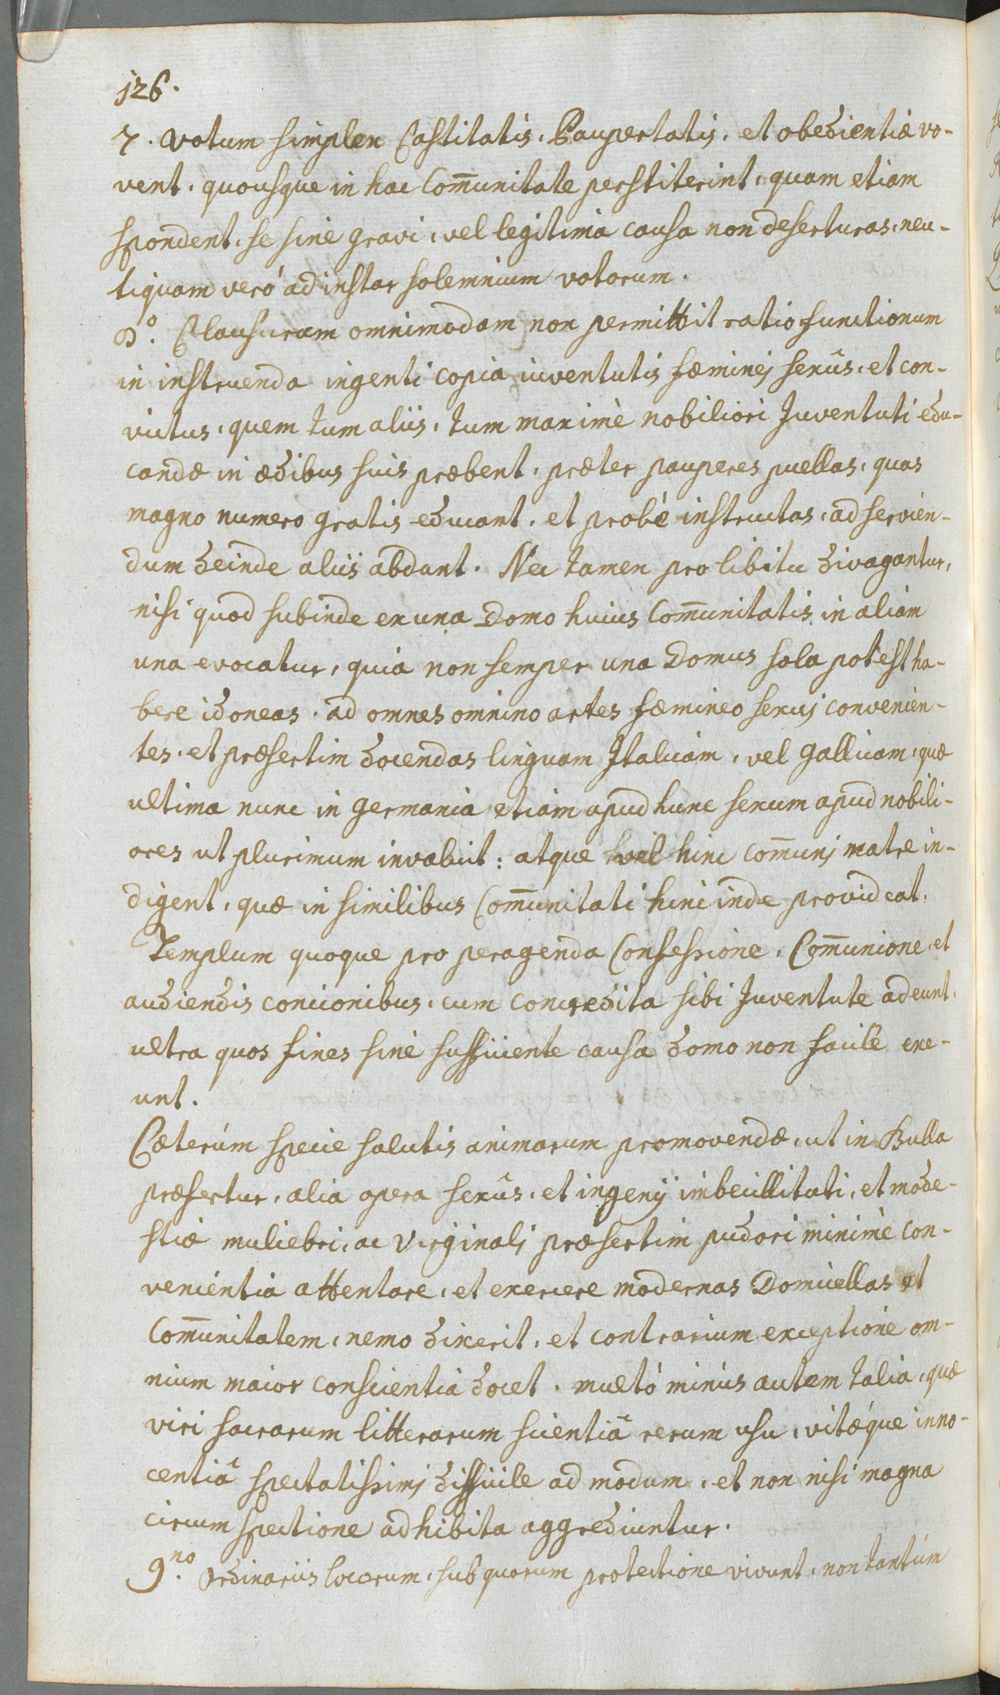 126.
7. Votum simplex Castitatis, Paupertatis, et obedientiæ vo-
vent, quousque in hac Com̄unitate perstiterint, quam etiam
spondent, se sine gravi, vel legitima causa non deserturas, neu-
tiquam veró ad instar solemnium votorum.
8º. Clausuram omnimodam non permittit ratio functionum
in instruenda ingenti copia iuventutis fæminej sexûs, et con-
victus, quem tum aliis, tum maximè nobiliori Juventuti edu-
candæ in ædibus suis præbent, præter pauperes puellas, quas
magno numero gratis educant, et probè instructas, ad servien-
dum deinde aliis abdant. Nec tamen pro libitu divagantur,
nisi quod subinde ex una Domo huius Com̄unitatis in aliam
una evocatur, quia non semper una Domus sola potest ha-
bere idoneas, ad omnes omnino artes fæmineo sexuj convenien-
tes, et præsertim docendas linguam Italicam, vel Gallicam, quæ
ultima nunc in Germania etiam apud hunc sexum apud nobili-
ores ut plurimum invaluit: atque vel hinc com̄unj matre in-
digent, quæ in similibus Com̄unitati hinc inde provideat.
Templum quoque pro peragenda Confessione, Com̄unione, et
audiendis concionibus, cum concredita sibi Juventute adeunt,
ultra quos fines sine sufficiente causa domo non facilè exe-
unt.
Cæterúm specie salutis animarum promovendæ, ut in Bulla
præfertur, alia opera sexûs, et ingenij imbecillitati, et mode-
stiæ muliebri, ac Virginalj præsertim pudori minimè con-
venientia attentare, et exercere modernas Domicellas et
Com̄unitatem, nemo dixerit, et contrarium exceptione om-
nium maior conscientia docet. multó minús autem talia, quæ
viri sacrarum litterarum scientiâ rerum usu, vitæque inno-
centiâ spectatissimj difficile ad modum, et non nisi magna
circum spectione adhibita aggrediuntur.
9.no Ordinariis locorum, sub quorum protectione vivunt, non tantúm